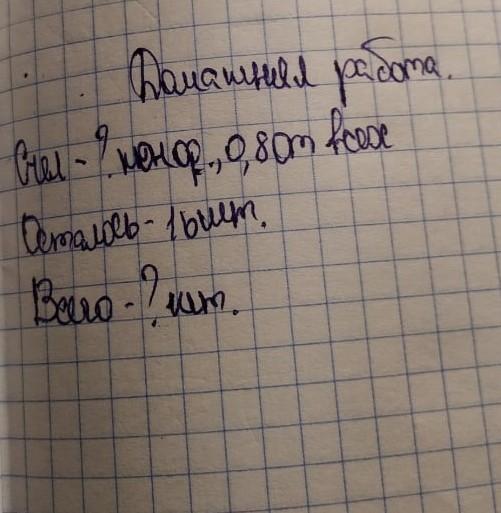 Домашняя работа.
Съел - ? конф., 0,8 от всех
Осталось - 16 шт.
Всего - ? шт.